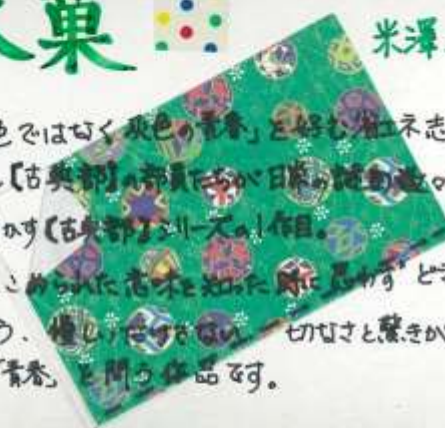 氷菓
米澤
色ではなく灰色の青春」を好む省エネ志
【古典部】の部員たちが日常の謎
かす【古典部】シリーズの1作目。
こめられた意味を知った時に思わず ど
う、優しいだけさない 切なさと驚きか
「青春」を問う作品です。